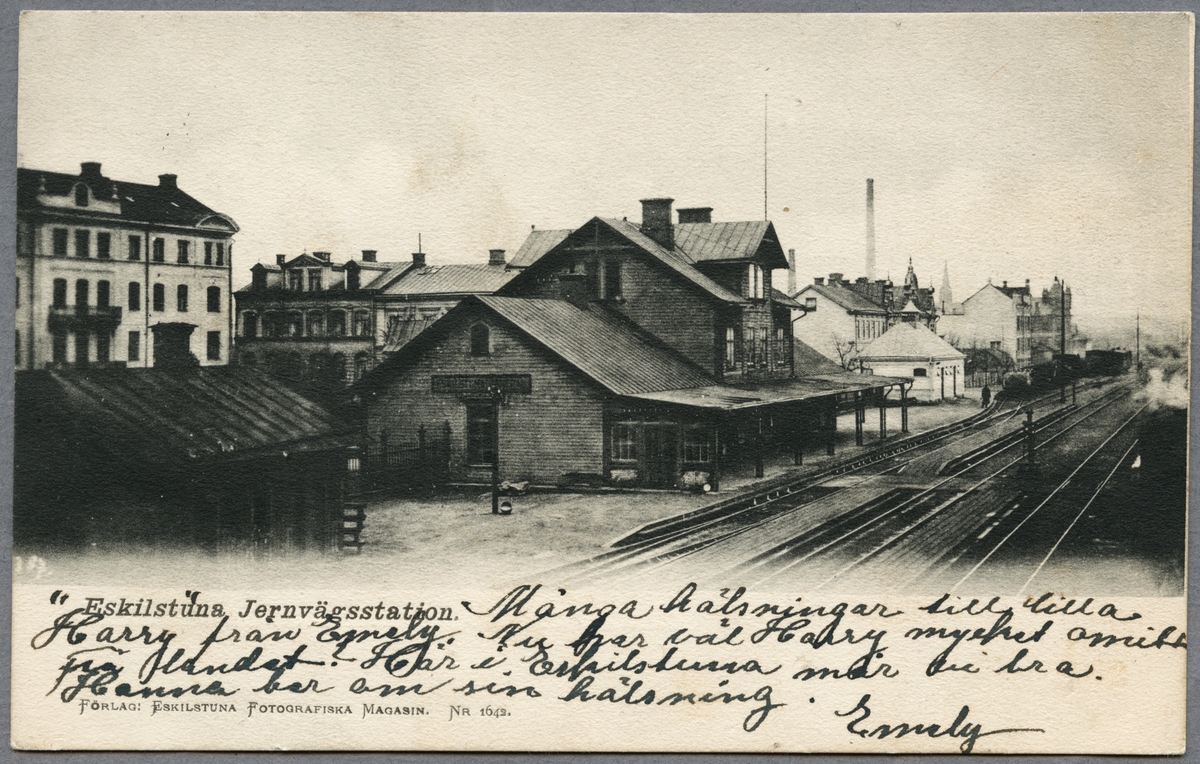 " Eskilstuna Jernvägsstation. Många hälsningar till lilla
Harry från Emely. Nu har väl Harry mycket omsitt
på landet. Här i Eskilstuna mår vi bra.
Hanna ber om sin hälsning.
FÖRLAG: ESKILSTUNA FOTOGRAFISKA MAGASIN. NR 1642.
Emely